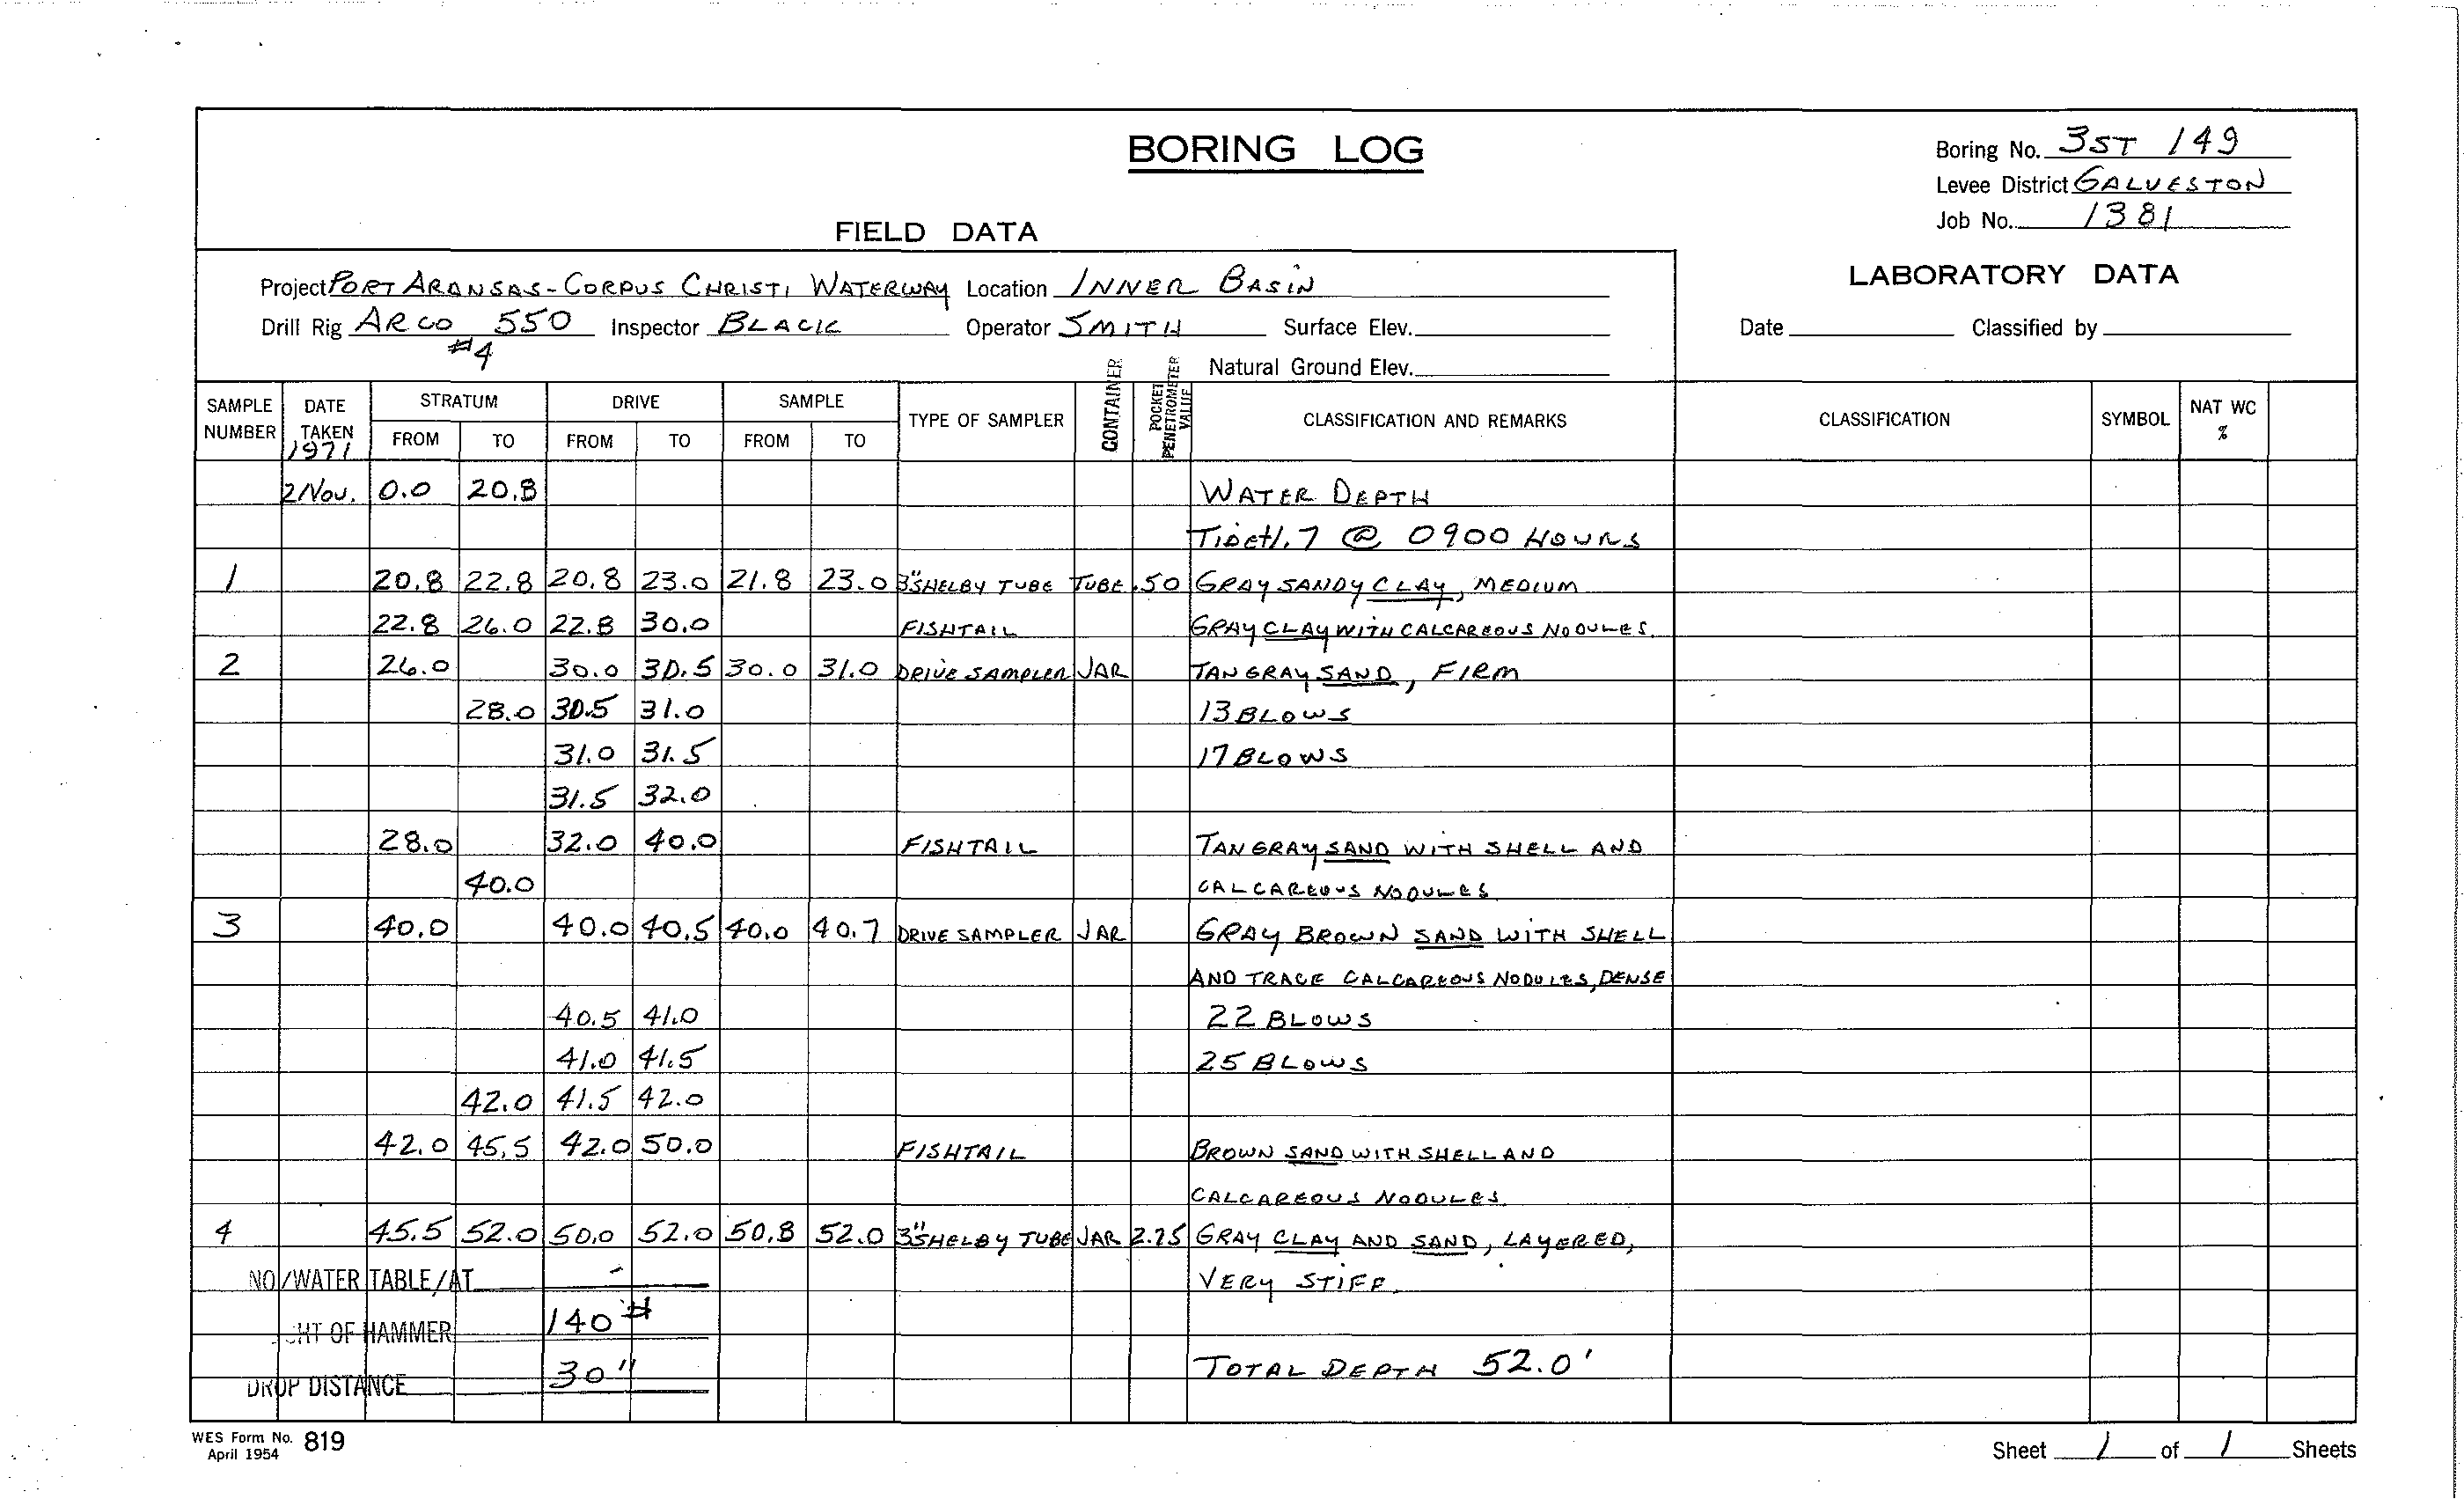 BORING LOG
Boring No. 3ST 149
Levee District GALVESTON
Job No. 1381
FIELD DATA
LABORATORY DATA
Project PORT ARANSAS-CORPUS CHRISTI WATERWAY Location INNER BASIN
Drill Rig ARCO 550 Inspector BLACK Operator SMITH Surface Elev. Date Classified by
#4
Natural Ground Elev.
SAMPLE NUMBER DATE TAKEN 1971 STRATUM FROM TO DRIVE FROM TO SAMPLE FROM TO TYPE OF SAMPLER CONTAINER POCKET PENETROMETER VALUE CLASSIFICATION AND REMARKS CLASSIFICATION SYMBOL NAT WC %
2 Nov. 0.0 20.8 WATER DEPTH
TIDE +1.7 @ 0900 HOURS
1 20.8 22.8 20.8 23.0 21.8 23.0 3" SHELBY TUBE TUBE .50 GRAY SANDY CLAY, MEDIUM
22.8 26.0 22.8 30.0 FISHTAIL GRAY CLAY WITH CALCAREOUS NODULES.
2 26.0 30.0 30.5 30.0 31.0 DRIVE SAMPLER JAR TAN GRAY SAND, FIRM
28.0 30.5 31.0 13 BLOWS
31.0 31.5 17 BLOWS
31.5 32.0
28.0 32.0 40.0 FISHTAIL TAN GRAY SAND WITH SHELL AND
40.0 CALCAREOUS NODULES
3 40.0 40.0 40.5 40.0 40.7 DRIVE SAMPLER JAR GRAY BROWN SAND WITH SHELL
AND TRACE CALCAREOUS NODULES, DENSE
40.5 41.0 22 BLOWS
41.0 41.5 25 BLOWS
42.0 41.5 42.0
42.0 45.5 42.0 50.0 FISHTAIL BROWN SAND WITH SHELL AND
CALCAREOUS NODULES.
4 45.5 52.0 50.0 52.0 50.8 52.0 3" SHELBY TUBE JAR 2.25 GRAY CLAY AND SAND, LAYERED,
NO/WATER TABLE/AT - VERY STIFF.
HT OF HAMMER 140 #
DROP DISTANCE 30" TOTAL DEPTH 52.0'
WES Form No. 819
April 1954
Sheet 1 of 1 Sheets